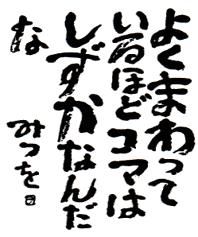 よくまわって
いるほどコマは
しずかなんだ
な
みつを